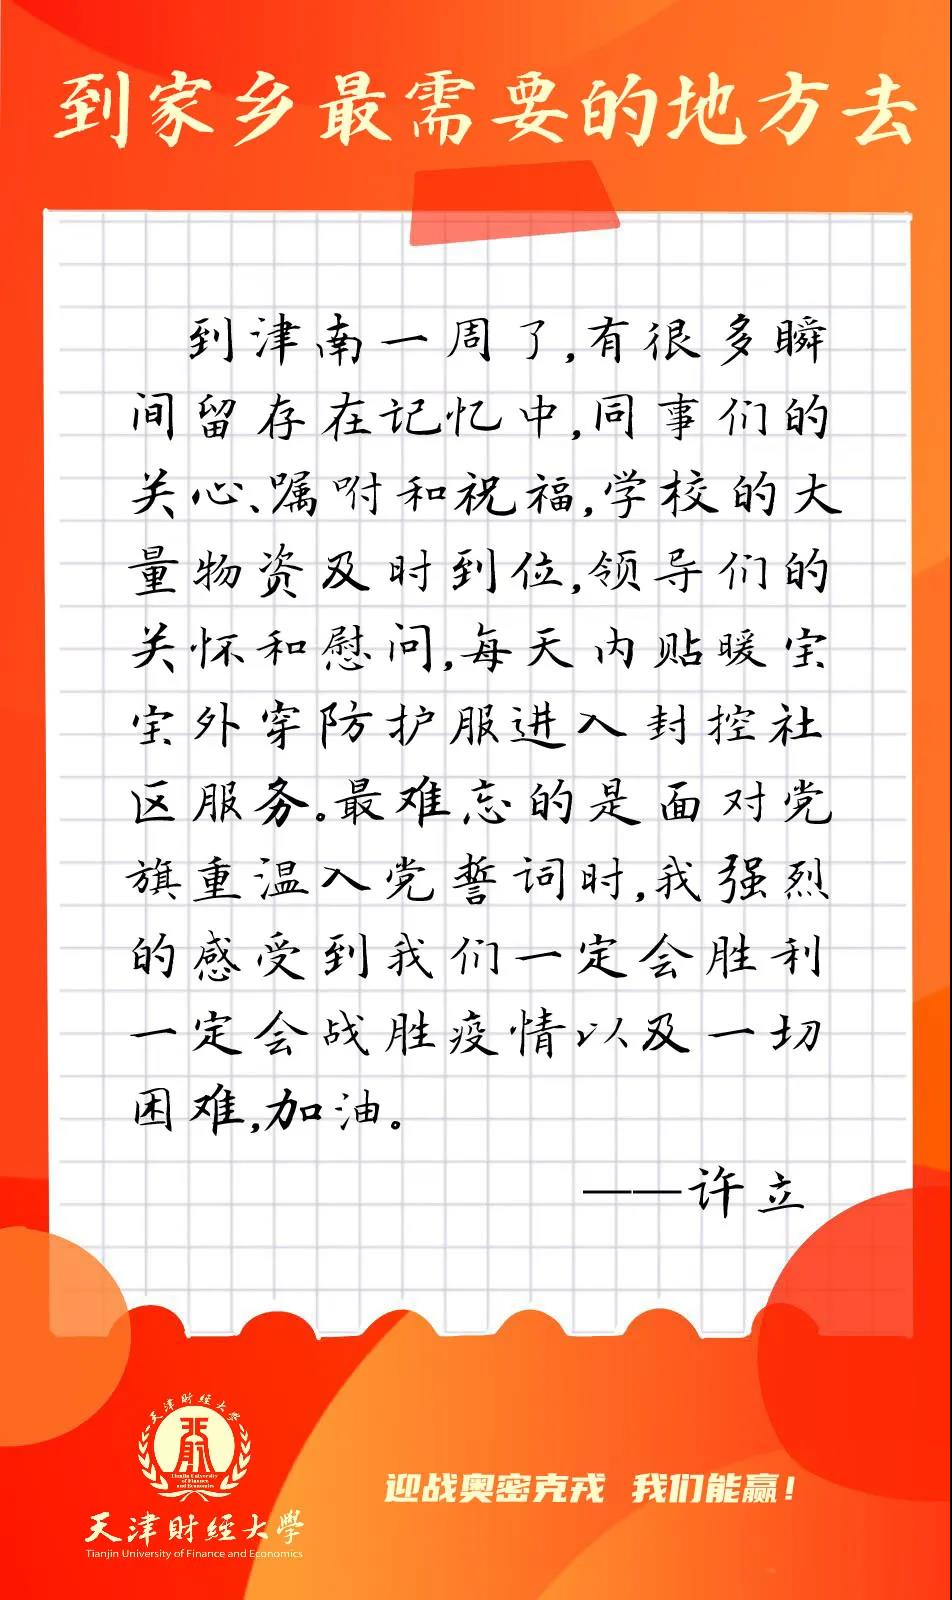 到家乡最需要的地方去
到津南一周了,有很多瞬
间留存在记忆中,同事们的
关心、嘱咐和祝福,学校的大
量物资及时到位,领导们的
关怀和慰问,每天内贴暖宝
宝外穿防护服进入封控社
区服务。最难忘的是面对党
旗重温入党誓词时,我强烈
的感受到我们一定会胜利
一定会战胜疫情以及一切
困难,加油。
——许立
天津财经大學
Tianjin University
of Finance
and Economics
天津财经大學
Tianjin University of Finance and Economics
迎战奥密克戎 我们能赢!